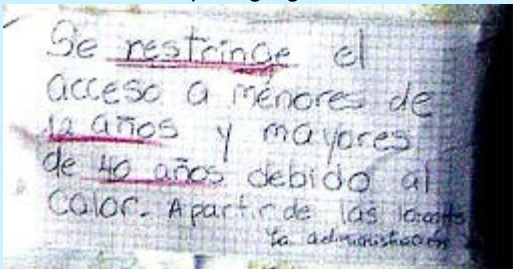 Se restringe el
acceso a ménores de
12 años y mayores
de 40 años debido al
calor. Apartir de las
la administración